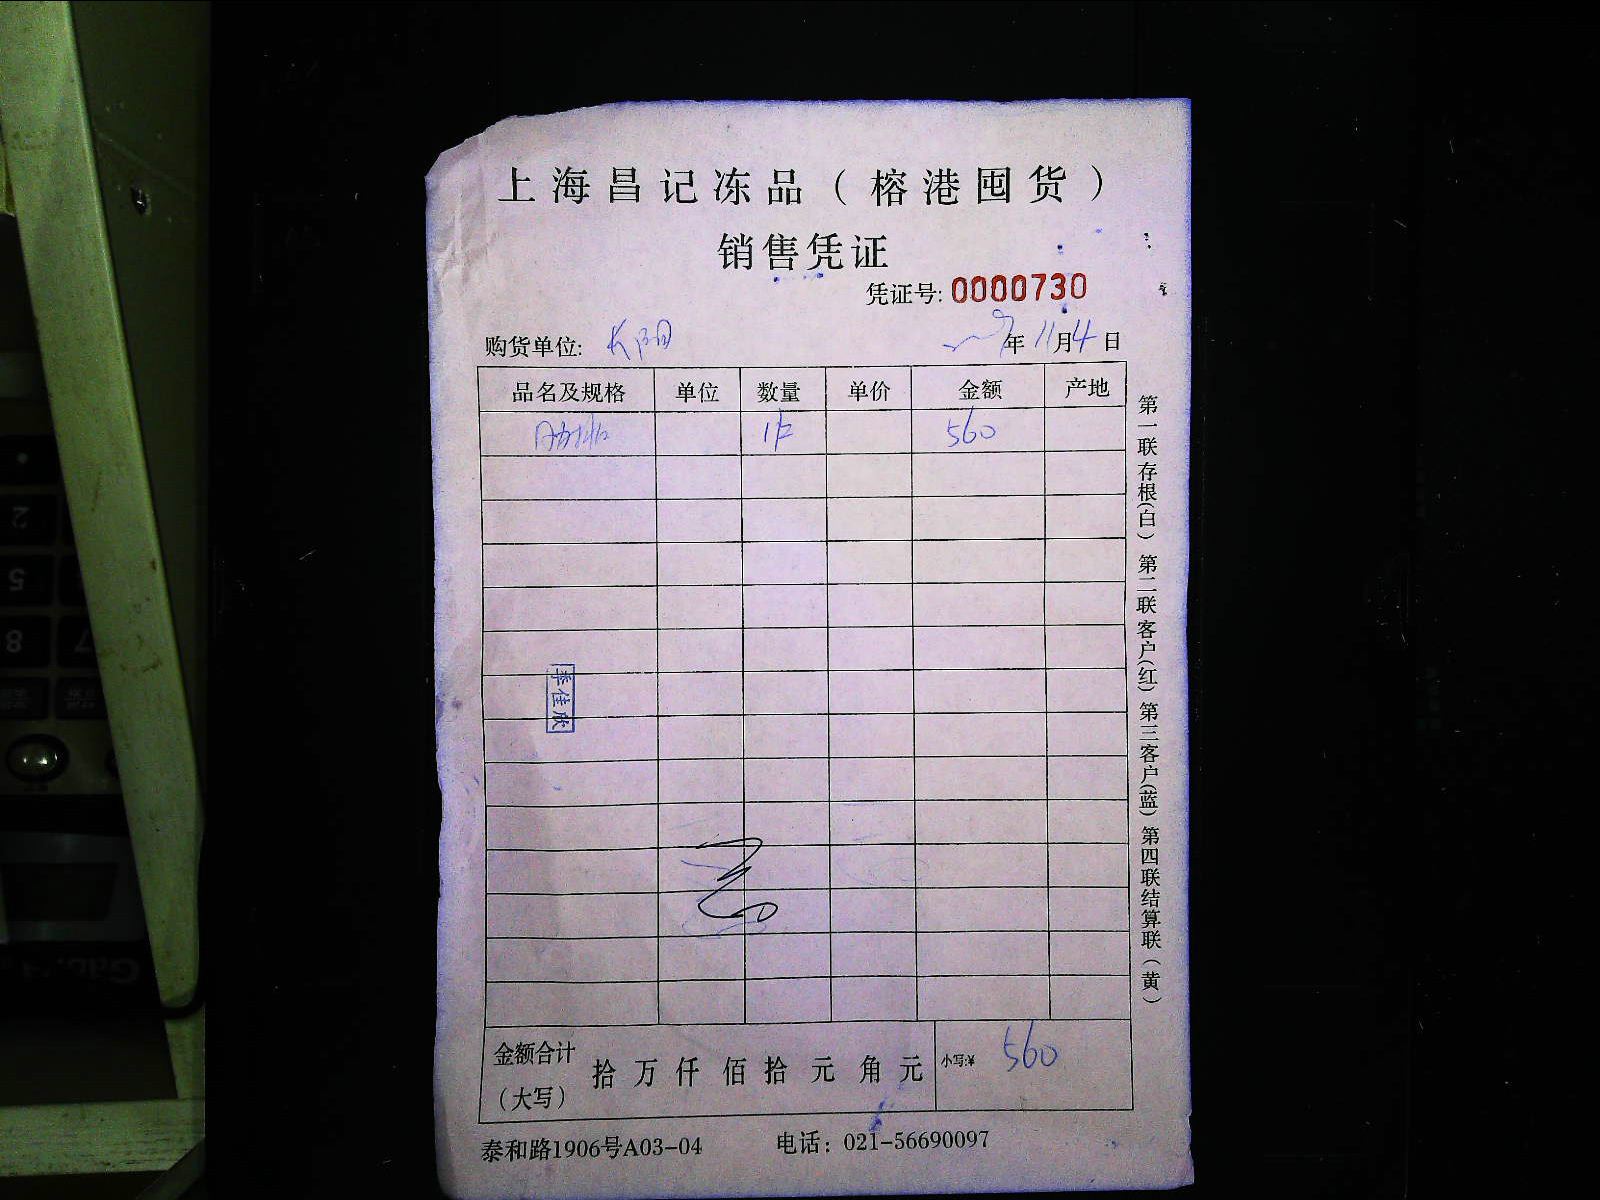 上海昌记冻品（榕港囤货）
销售凭证
凭证号: 0000730
购货单位: 长阳 年 11月4日
品名及规格 单位 数量 单价 金额 产地
1件 560
李佳欣
金额合计（大写） 拾 万 仟 佰 拾 元 角 元 小写:¥ 560
泰和路1906号A03-04 电话：021-56690097
第一联存根(白) 第二联客户(红) 第三客户(蓝) 第四联结算联(黄)
2
5
8
7